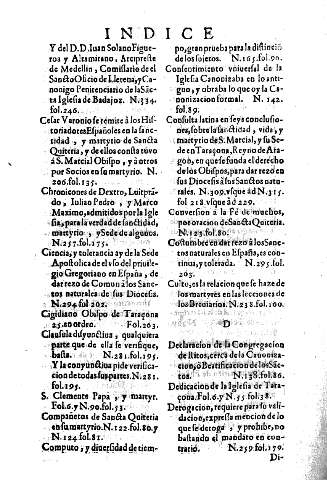 INDICE
Y del D.D. Iuan Solano Figue-
roa y Altamirano, Arcipreste
de Medellin, Comissario del
Sancto Oficio de Llerena, y Ca-
nonigo Penitenciario de la Sãc-
ta Iglesia de Badajoz. N.334.
fol.246.
Cesar Varonio se remite à los His-
toriadores Españoles en la sanc-
tidad, y martyrio de Sancta
Quiteria, y de ellos consta tuvo
à S. Marcial Obispo, y à otros
por Socios en su martyrio. N.
206.fol.135.
Chronicones de Dextro, Luitprã-
do, Iulian Pedro, y Marco
Maximo, admitidos por la Igle-
sia, para la verdad de sanctidad,
martyrio, y Sede de algunos.
N.257.fol.175.
Ciencia, y tolerancia ay de la Sede
Apostolica de el vso del privile-
gio Gregoriano en España, de
dar rezo de Comun à los Sanc-
tos naturales de sus Diocesis.
N.294.fol.202.
Cigidiano Obispo de Taragona
25.en orden. Fol.203.
Clausula disyunctiua, qualquiera
parte que de ella se verifique,
basta. N.281.fol.195.
Y la conyunctiua pide verifica-
cion de todas sus partes. N.281.
fol.195.
S. Clemente Papa, y martyr.
Fol.6.y N.90.fol.53.
Compañeras de Sancta Quiteria
en su martyrio. N.122.fol.80.y
N.124.fol.81.
Computo, y diversidad de tiem-
po, gran prueba para la distinciõ
de los sujetos. N.165.fol.90.
Consentimento vniuersal de la
Iglesia Canonizaba en lo anti-
guo, y obraba lo que oy la Ca-
nonizacion formal. N.142.
fol.89.
Consulta latina en seys conclusio-
nes, sobre la sanctidad, vida, y
martyrio de S. Marcial, y su Se-
de en Taragona, Reyno de Ara-
gon, en que se funda el derecho
de los Obispos, para dar rezo en
sus Diocesis à los Sanctos natu-
rales. N.309.vsque àd N.315.
fol 218.vsque àd 229.
Conversion à la Fè de muchos,
por oracion de Sancta Quiteria.
N.123.fol.80.
Costumbre en dar rezo à los Sanc-
tos naturales en España, es con-
tinua, y tolerada. N.295.fol.
203.
Culto, es la relacion que se haze de
los martyres en las lecciones de
los Breviarios. N.238.fol.160.
D
Declaracion de la Congregacion
de Ritos, cerca de la Canoniza-
cion, ò Beatificacion de los Sãc-
tos. N.138.fol.86.
Dedicacion de la Iglesia de Tara-
çona. Fol.6.y N.55 fol.38.
Derogacion, requiere para su vali-
dacion, expressa mencion de lo
que se deroga, y prohibe, no
bastando el mandato en con-
trario. N.259.fol.179.
Di-